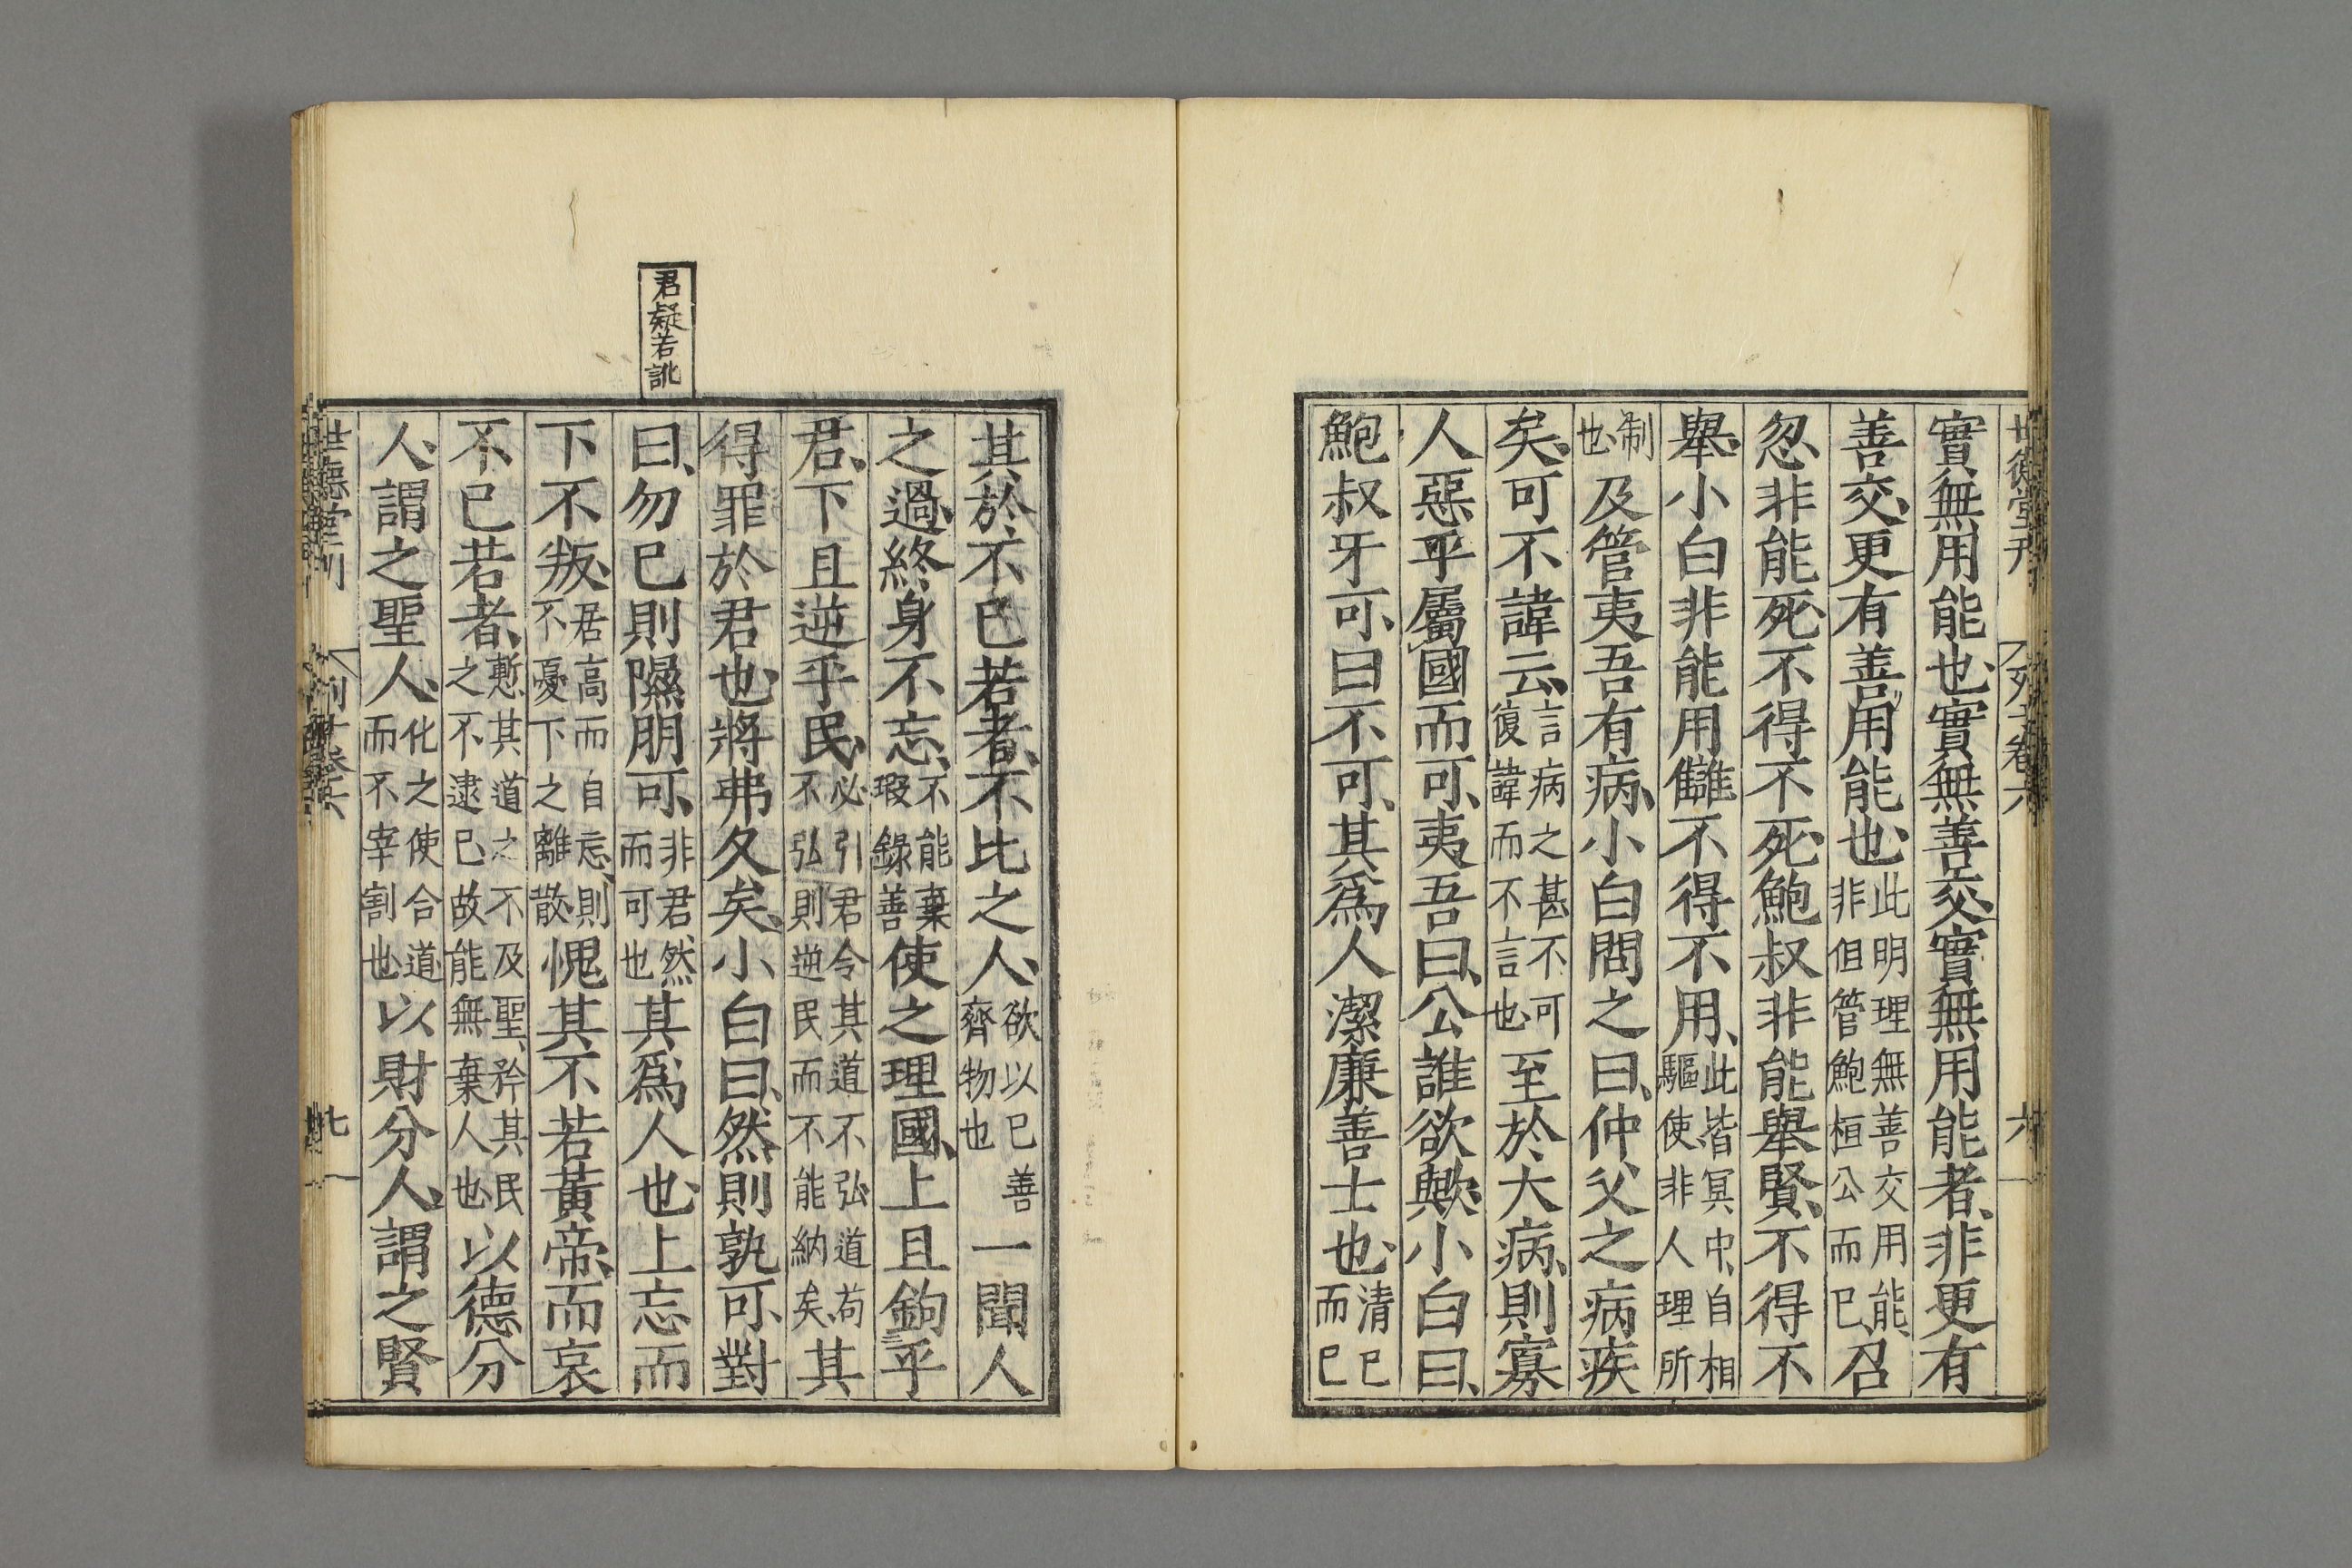 世德堂刊 列子卷六 六
實無用能也、實無善交、實無用能者、非更有
善交、更有善用能也、此明理無善交用能、非但管鮑桓公而已、召
忽非能死、不得不死、鮑叔非能舉賢、不得不
舉、小白非能用讎、不得不用、此皆冥中、自相驅使非人理所
制也、及管夷吾有病、小白問之曰、仲父之病疾
矣、可不諱云、言病之甚不可復諱而不言也、至於大病、則寡
人惡乎屬國而可、夷吾曰、公誰欲歟、小白曰、
鮑叔牙可、曰不可、其爲人潔廉善士也、清已而已
其於不已若者、不比之人、欲以已善齊物也一聞人
之過、終身不忘、不能棄瑕錄善使之理國、上且鉤乎
君、下且逆乎民、必引君令其道不弘道苟不弘則逆民而不能納矣、其
得罪於君也、將弗久矣、小白曰、然則孰可、對
曰、勿已則隰朋可、非君、然而可也其爲人也、上忘而
下不叛、居高而自忘、則不憂下之離散、愧其不若黃帝、而哀
不已若者、慙其道之不及聖、矜其民之不逮已故能無棄人也、以德分
人、謂之聖人、化之使合道而不宰割也、以財分人、謂之賢
君疑若訛
世德堂刊 列子卷六 七